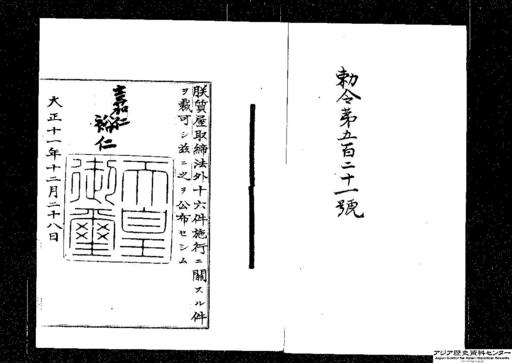 勅令第五百二十一號
朕質屋取締法外十六件施行ニ關スル件
ヲ裁可シ茲ニ之ヲ公布セシム
嘉仁
裕仁
天皇
御璽
大正十一年十二月二十八日
アジア歴史資料センター
Japan Center for Asian Historical Records